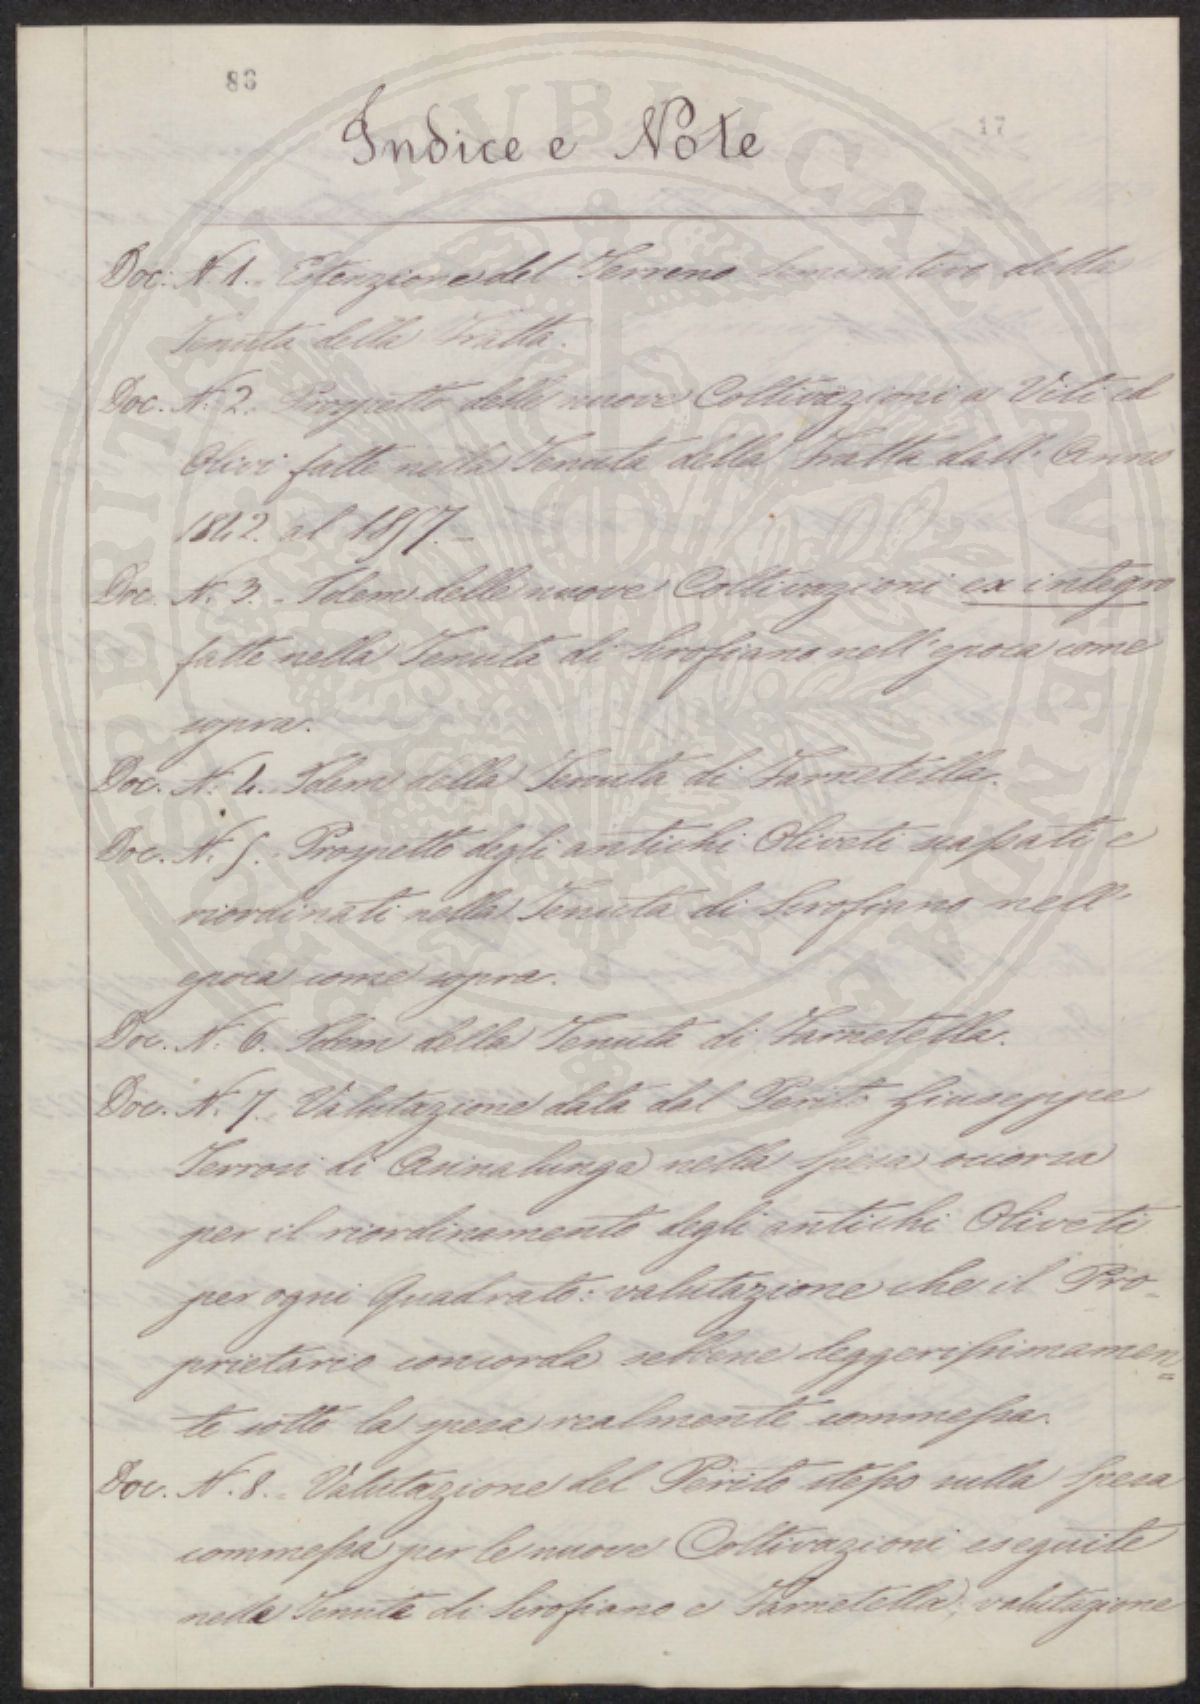 86
17
Indice e Note
Doc: N. 1. Estenzione del Terreno Seminativo della
Tenuta della Fratta.
Doc. N. 2. Prospetto delle nuove Coltivazioni a Viti ed
Olivi fatte nella Tenuta della Fratta dall' Anno
1842. al 1857.
Doc. N. 3. Idem delle nuove Coltivazioni ex integro
fatte nella Tenuta di Scrofiano nell' epoca come
sopra.
Doc. N. 4. Idem della Tenuta di Farnetella.
Doc. N. 5. Prospetto degli antichi Oliveti scassati e
riordinati nella Tenuta di Scrofiano nell'
epoca come sopra.
Doc. N. 6. Idem della Tenuta di Farnetella.
Doc. N. 7. Valutazione data dal Perito Giuseppe
Terrosi di Asinalunga nella spesa occorsa
per il riordinamento degli antichi Oliveti
per ogni Quadrato: valutazione che il Pro-
prietario concorda sebbene leggerissimamen=
te sotto la spesa realmente commessa.
Doc. N. 8. Valutazione del Perito stesso sulla spesa
commessa per le nuove Coltivazioni eseguite
nelle Tenute di Scrofiano e Farnetella; valutazione